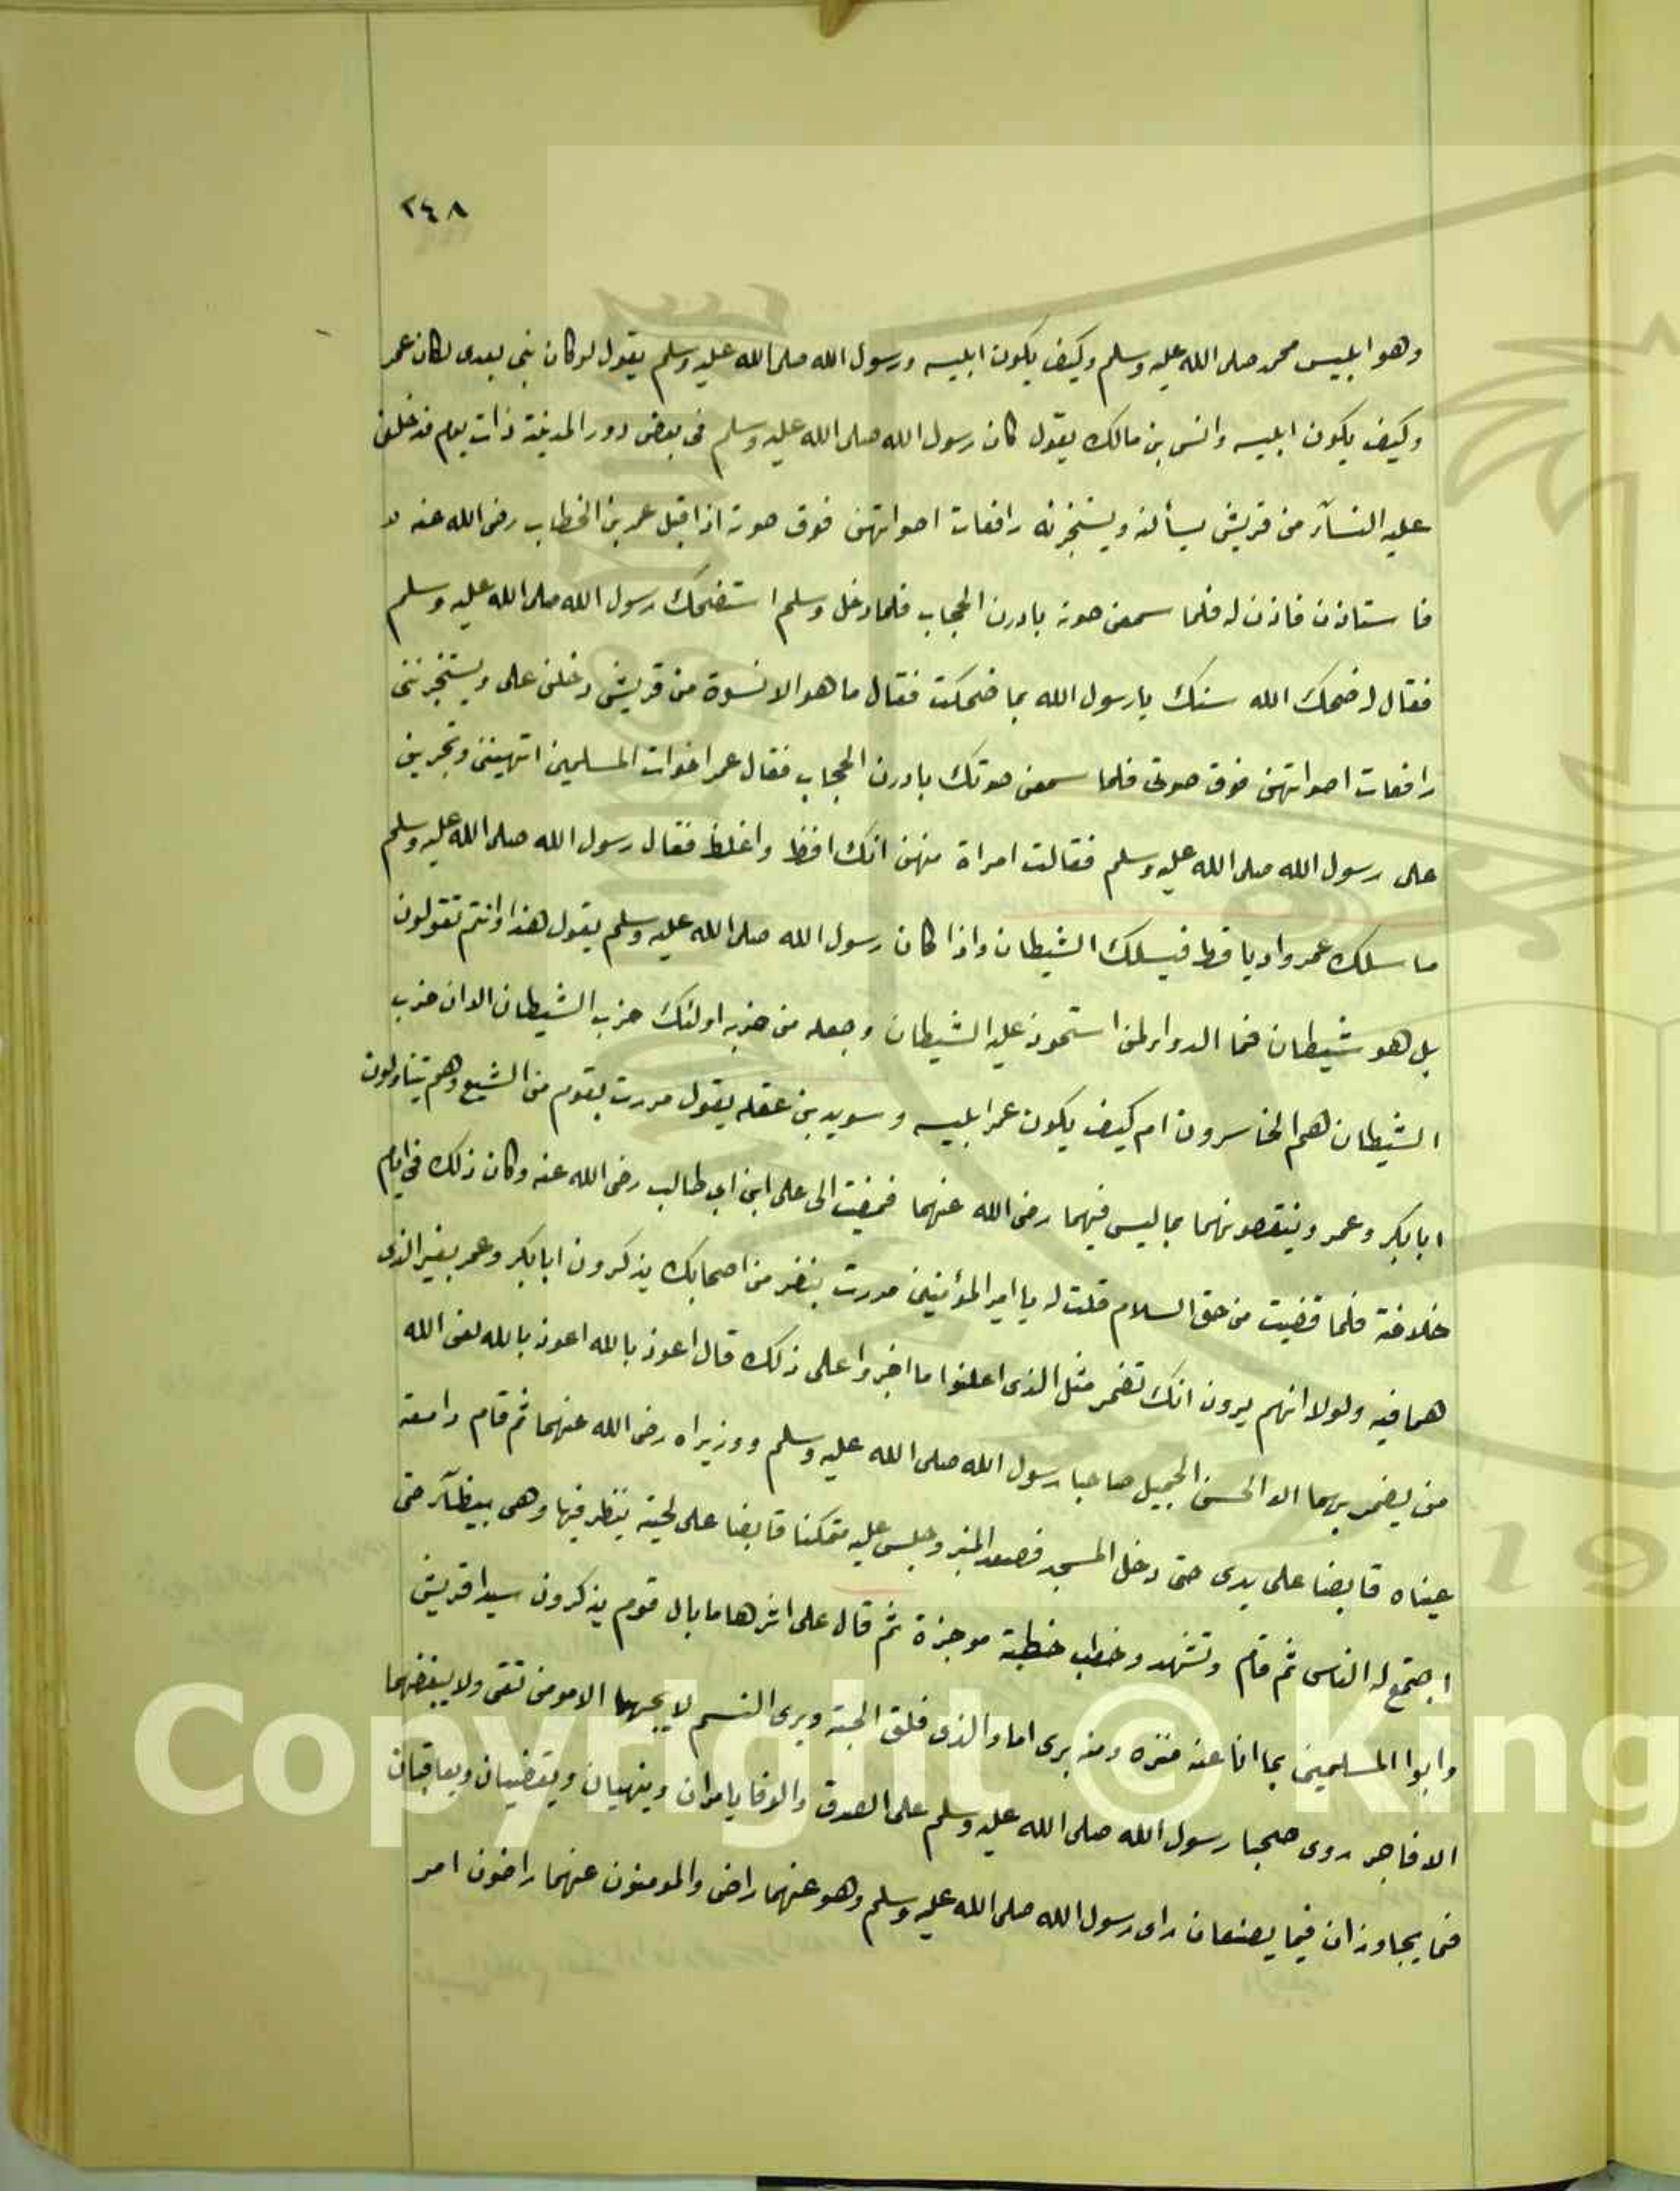 ٢٤٨
وهو ابليس محمد صلى الله عليه وسلم وكيف يكون ابليسه ورسول الله صلى الله عليه وسلم يقول لو كان نبى بعدى لكان عمر
وكيف يكون ابليسه وانس بن مالك يقول كان رسول الله صلى الله عليه وسلم فى بعض دور المدينة ذات يوم فدخلن
عليه النسآء من قريش يسألنه ويستخبرنه رافعات اصواتهن فوق صوته اذ اقبل عمر بن الخطاب رضى الله عنه
فاستاذن فاذن له فلما سمعن صوته بادرن الحجاب فلما دخل وسلم استضحك رسول الله صلى الله عليه وسلم
فقال له ضحك الله سنك يا رسول الله بما ضحكت فقال ما هو الا نسوة من قريش دخلن على ويستخبرننى
رافعات اصواتهن فوق صوتى فلما سمعن صوتك بادرن الحجاب فقال عمر اخوات المسلمين اتهيننى وتجرين
على رسول الله صلى الله عليه وسلم فقالت امراة منهن انك افظ واغلظ فقال رسول الله صلى الله عليه وسلم
ما سلك عمر واديا قط فيسلك الشيطان واذا كان رسول الله صلى الله عليه وسلم يقول هذا وانتم تقولون
بل هو شيطان فما الدواء لمن استحوذ عليه الشيطان وجعله من حزبه اولئك حزب الشيطان الا ان حزب
الشيطان هم الخاسرون ام كيف يكون عمر ابليسه وسويد بن عقله يقول مررت بقوم من الشيع وهم يتناولون
ابا بكر وعمر وينتقصونهما بما ليس فيهما رضى الله عنهما فمضيت الى على ابن ابى طالب رضى الله عنه وكان ذلك فى ايام
خلافته فلما قضيت من حق السلام قلت له يا امير المؤمنين مررت بنفر من اصحابك يذكرون ابا بكر وعمر بغير الذى
هما فيه ولولا انهم يرون انك تضمر مثل الذى اعلنوا ما اجروا على ذلك قال اعوذ بالله اعوذ بالله لعن الله
من يضمر بهما الا الحسن الجميل صاحبا رسول الله صلى الله عليه وسلم ووزيراه رضى الله عنهما ثم قام دامعة
عيناه قابضا على يدى حتى دخل المسجد فصعد المنبر وجلس عليه متمكنا قابضا على لحيته ينظر فيها وهى بيظآء حتى
اجتمع له الناس ثم قام وتشهد وخطب خطبة موجزة ثم قال على اثرها ما بال قوم يذكرون سيدا قريش
وابوا المسلمين بما انا عنه منزه ومنه برى اما والذى فلق الحبة وبرى النسم لا يحبهما الا مومن تقى ولا يبغضهما
الا فاجر روى صحبا رسول الله صلى الله عليه وسلم على الصدق والوفا يامران وينهيان ويقضيان ويعاقبان
فما يجاوزان فيما يصنعان راى رسول الله صلى الله عليه وسلم وهو عنهما راضى والمومنون عنهما راضون امر
Copyright © King